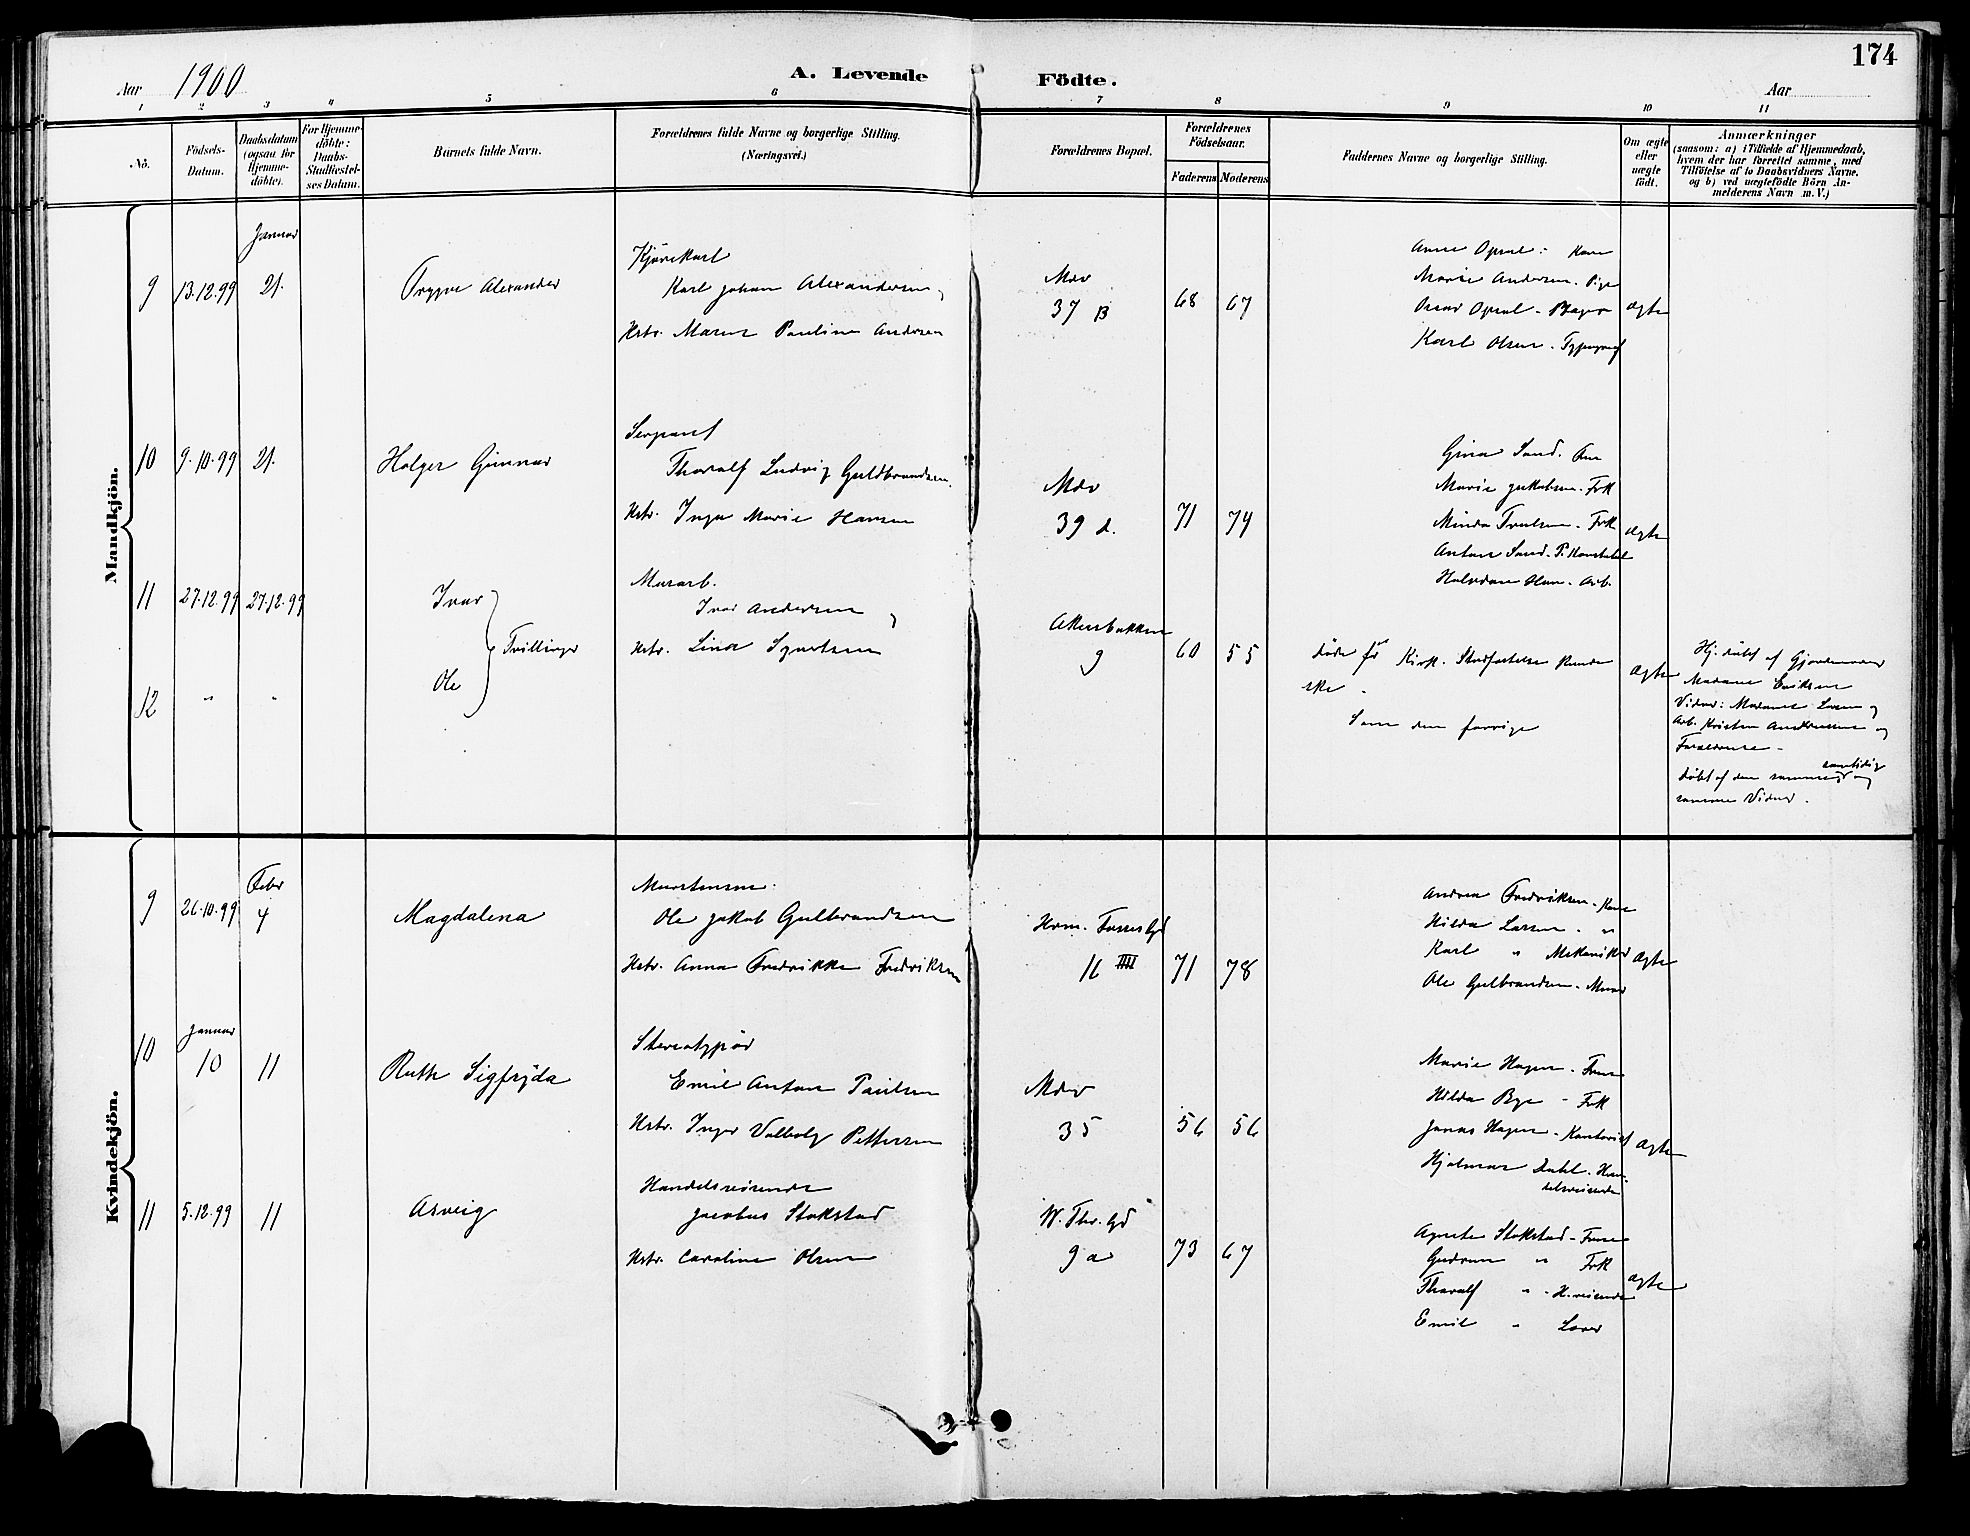 174
Aar 1900
A. Levende Födte.
Aar
1 2 3 4 5 6 7 8 9 10 11
No.
Födsels-Datum.
Daabsdatum (ogsaa for Hjemme-döbte).
For Hjemme-döbte: Daabs-Stadfæstel-ses Datum.
Barnets fulde Navn.
Forældrenes fulde Navne og borgerlige Stilling.
(Næringsvei.)
Forældrenes Bopæl.
Forældrenes Födselsaar.
Faderens Moderens
Faddernes Navne og borgerlige Stilling.
Om ægte eller uægte födt.
Anmærkninger
(saasom: a) i Tilfælde af Hjemmedaab,
hvem der har forrettet samme, med
Tilföielse af to Daabsvidners Navne.
og b) ved uægtefödte Börn An-
melderens Navn m. V.)
Mandkjön.
Januar
9 13.12.99 21.
Trygve Alexander
Kjørekarl
Karl Johan Alexandersen
Hstr. Maren Pauline Andersen
Mdv
37 B
68 67
Anna Opsal: Kone
Marie Andersen. Pige
Oscar Opsal - Bager
Karl Olsen. Typograf
ægte
10 9.10.99 21.
Holger Gunnar
Sergeant
Thoralf Ludvig Guldbrandsen.
Hstr. Inga Marie Hansen
Mdv
39 d.
71 74
Gina Sand.
Marie Jakobsen. Frk
Minda Truelsen - Frk
Anton Sand. P. Konstabel
Halvdan Arb.
ægte
11 27.12.99 27.12.99
Ivar
Tvillinger
Ole
12 " "
Murarb.
Ivar Andersen
Hstr. Lina Syvertsen
Akersbakken
9
60 55
døde før Kirk. Stadfæstelse kunde
ske.
Som den forrige
ægte
Hj. døbt af Gjordemoder
Madame Eriksen
Vidner: Madame Larsen og
Arb. Kristen Andersen og
Forældrene -
samtidig
døbt af den samme og
samme Vidner.
Kvindekjön.
Febr
9 26.10.99 4
Magdalena
Murstensm.
Ole Jakob Gulbrandsen
Hstr. Anna Fredrikke Fredriksen
16 IIII
71 78
Andrea Fredriksen - Kone
Hilda Larsen - "
Karl " Mekaniker
Ole Gulbrandsen - Murer
ægte
Januar
10 10 11
Ruth Sigfryda
Stereotypør
Emil Anton Paulsen
Hstr. Inger Valborg Pettersen
Mdv
35
56 56
Marie Hagen - Frue
Hilda Bye - Frk
Jonas Hagen - Kontorist
Hjalmar Dahl. Han-
delsreisende
ægte
11 5.12.99 11
Asveig
Handelsreisende
Jacobus Stokstad
Hstr. Caroline Olsen
W. Thr. Gd
9 a
73 67
Agnete Stokstad - Frue
Gudrun " Frk
Thoralf " - H. reisende
Emil "
ægte